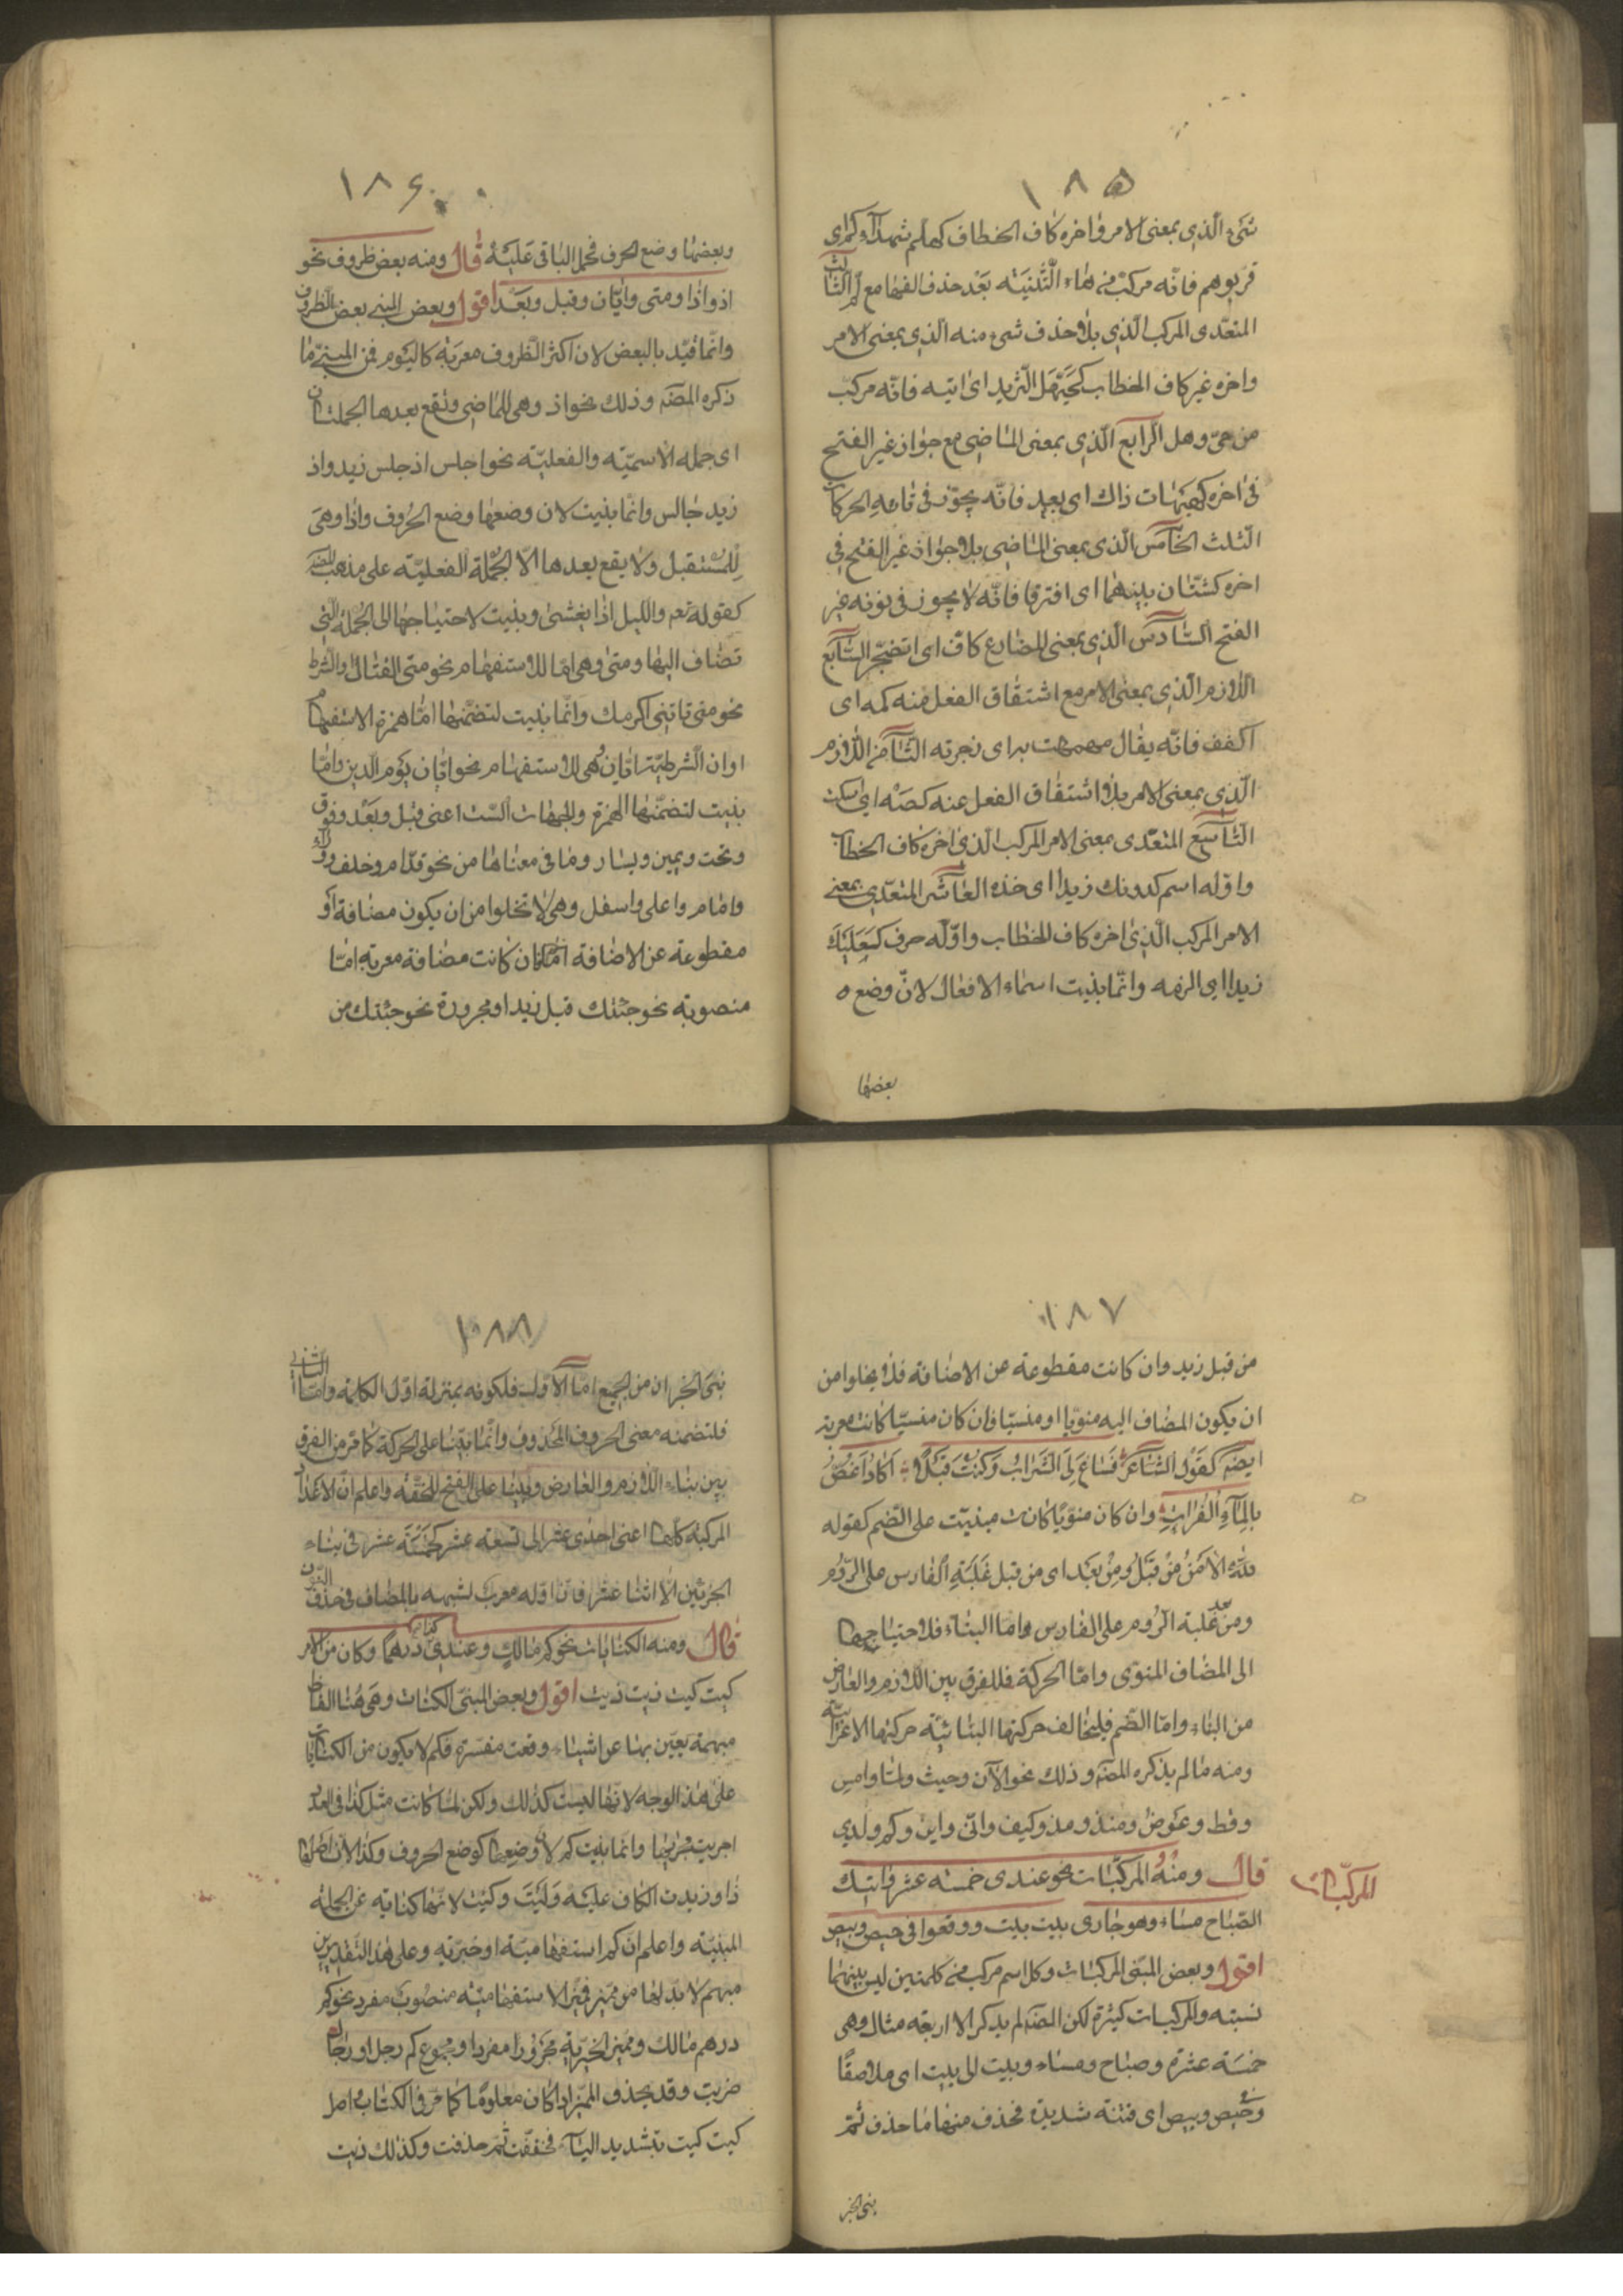 ١٨٥
شئ الذي بمعنى الامر واخره كاف الخطاف كهلم شهداءكم اى
قربوهم فانه مركب من هاء التثنيته بعد حذف الفها مع لم الثالث
المتعدى المركب الذي بلا حذف شئ منه الذي بمعنى الامر
واخره غير كاف الخطاب كحيهل الثريد اى ايتيه فانه مركب
من حى وهل الرابع الذي بمعنى الماضى مع جواز غير الفتح
فى اخره كهيهات ذاك اى بعد فانه يجوز فى تائه الحركات
الثلث الخامس الذى بمعنى الماضى بلا جواز غير الفتح فى
اخره كشتان بينهما اى افترقا فانه لا يجوز فى نونه غير
الفتح السادس الذي بمعنى المضارع كاف اى اتضجر السابع
اللازم الذي بمعنى الامر مع اشتقاق الفعل منه كمه اى
اكفف فانه يقال مهمهت به اى زجرته الثامن اللازم
الذي بمعنى الامر بلا اشتقاق الفعل عنه كصه اى اسكت
التاسع المتعدى بمعنى الامر المركب الذى اخره كاف الخطاب
واوله اسم كدونك زيدا اى خذه العاشر المتعدي بمعنى
الامر المركب الذى اخره كاف الخطاب واوله حرف كعليك
زيدا اى الزمه وانما بنيت اسماء الافعال لان وضع ه
بعضها
١٨٦
وبعضها وضع الحرف فحمل الباقى عليه قال ومنه بعض ظروف نحو
اذ واذا ومتى وايان وقبل وبعد اقول وبعض المبنى بعض الظروف
وانما قيد بالبعض لان اكثر الظروف معربة كاليوم فمن المبنى ما
ذكره المصنه وذلك نحو اذ وهى للماضى وتقع بعدها الجملتان
اى جمله الاسميته والفعليته نحو اجلس اذ جلس زيد واذ
زيد جالس وانما بنيت لان وضعها وضع الحروف واذا وهى
للمستقبل ولا يقع بعدها الا الجملة الفعلية على مذهب المصنه
كقوله تعه والليل اذا يغشى وبنيت لاحتياجها الى الجملة التى
تضاف اليها ومتى وهى اما للاستفهام نحو متى القتال والشرط
نحو متى تاتنى اكرمك وانما بنيت لتضمنها اما همزة الاستفهام
او ان الشرطية وايان وهى للاستفهام نحو ايان يوم الدين وانما
بنيت لتضمنها الهمزة والجهات الست اعنى قبل وبعد وفوق
وتحت ويمين ويسار وما فى معناها من نحو قدام وخلف وراء
وامام واعلى واسفل وهى لا تخلوا من ان يكون مضافة او
مقطوعة عن الاضافة فان كانت مضافة معربة اما
منصوبة نحو جئتك قبل زيد او مجرورة نحو جئتك من
١٨٧
من قبل زيد وان كانت مقطوعة عن الاضافة فلا يخلوا من
ان يكون المضاف اليه منويا او منسيا فان كان منسيا كانت معربة
ايضه كقول الشاعر فساغ لى الشراب وكنت قبلا اكاد اغص
بالماء الفرات وان كان منويا كانت مبنيت على الضم كقوله
لله الامر من قبل ومن بعد اى من قبل غلبة الفارس على الروم
ومن بعد غلبة الروم على الفارس واما البناء فلاحتياجها
الى المضاف المنوى واما الحركة فللفرق بين اللازم والعارض
من البناء واما الضم فليخالف حركتها البنائية حركتها الاعرابية
ومنه ما لم يذكره المصنه وذلك نحو الآن وحيث ولما وامس
وقط وعوض ومنذ ومذ وكيف وانى واين وكم ولدي
قال ومنه المركبات نحو عندى خمسه عشر واتيك
المركبات
الصباح مساء وهو جارى بيت بيت ووقعوا فى حيص وبيص
اقول وبعض المبنى المركبات وكل اسم مركب من كلمتين ليس بينهما
نسبته والمركبات كثيرة لكن المصنه لم يذكر الا اربعه مثال وهى
خمسة عشرة وصباح ومساء وبيت الى بيت اى ملاصقا
وحيص وبيص اى فتنة شديدة فحذف منها ما حذف ثم
بنى الجز
١٨٨
بنى الجزان من الجميع اما الاول فلكونه بمنزلة اول الكلمة واما الثانى
فلتضمنه معنى الحروف المحذوف وانما بنيا على الحركة كما مر من الفرق
بين بناء اللازم والعارض وبنيا على الفتح للخفه واعلم ان الاعداد
المركبة كلها اعنى احدى عشر الى تسعة عشر كخمسة عشر فى بناء
الجزئين الا اثنا عشر فان اوله معرب لشبهه بالمضاف فى حذف النون
قال ومنه الكنايات نحو كم مالك وعندى كذا درهما وكان من الامر
كيت كيت ذيت ذيت اقول وبعض المبنى الكنات وهى هنا الفاظ
مبهمة يعبر بها عن اشياء وقعت مفسرة فكم لا يكون من الكنايات
على هذ الوجه لانها ليست كذلك ولكن لما كانت مثل كذا فى العدد
اجريت مجريها وانما بنيت كم لان وضعها كوضع الحروف وكذا لان اصلها
ذا وزيدت الكاف عليه وكيت وكيت لانها كناية عن الجملة
المبنيته واعلم ان كم استفهاميته او خبريه وعلى هذا التقديرين
مبهم لا بد لها من مميز فميز الاستفهاميته منصوب مفرد نحو كم
درهم مالك ومميز الخبرية مجرورا مفردا ومجموع كم رجل او رجال
ضربت وقد يحذف المميز اذا كان معلوما كما مر فى الكتاب واصل
كيت كيت بتشديد الياء فخففت ثم حذفت وكذلك ذيت